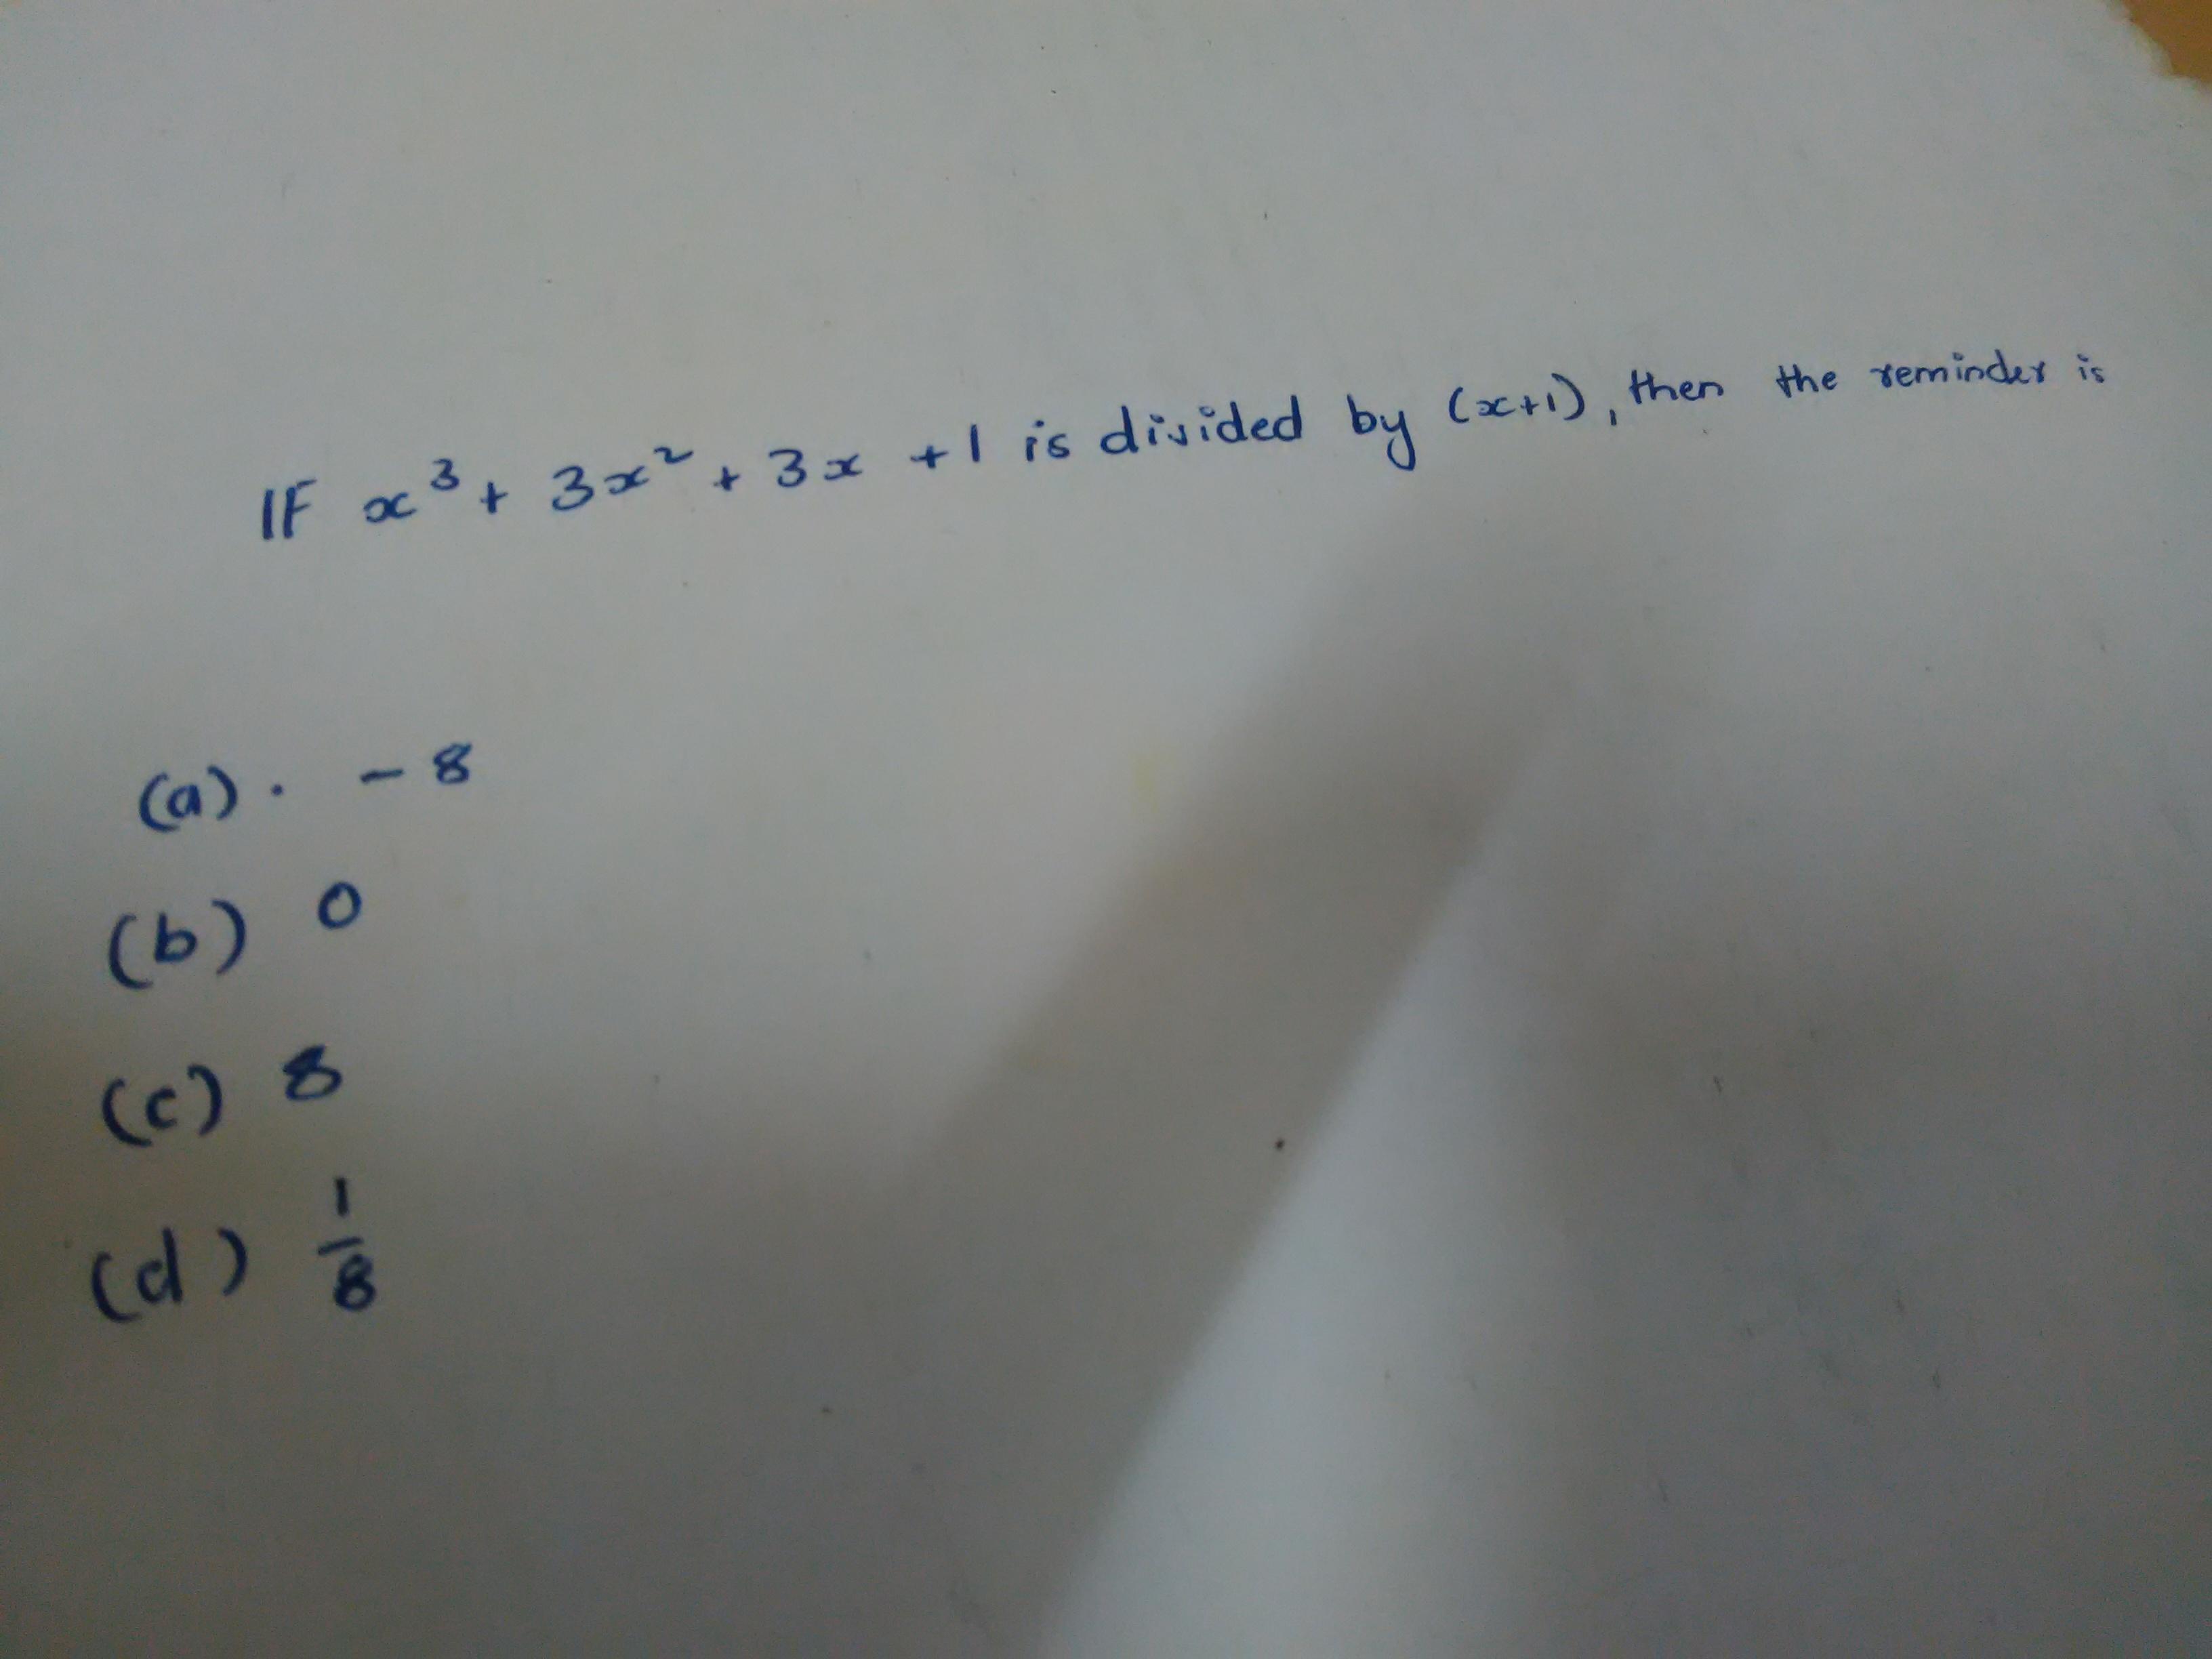 IF x³ + 3x² + 3x + 1 is divided by (x+1), then the reminder is
(a). - 8
(b) 0
(c) 8
(d) 1/8